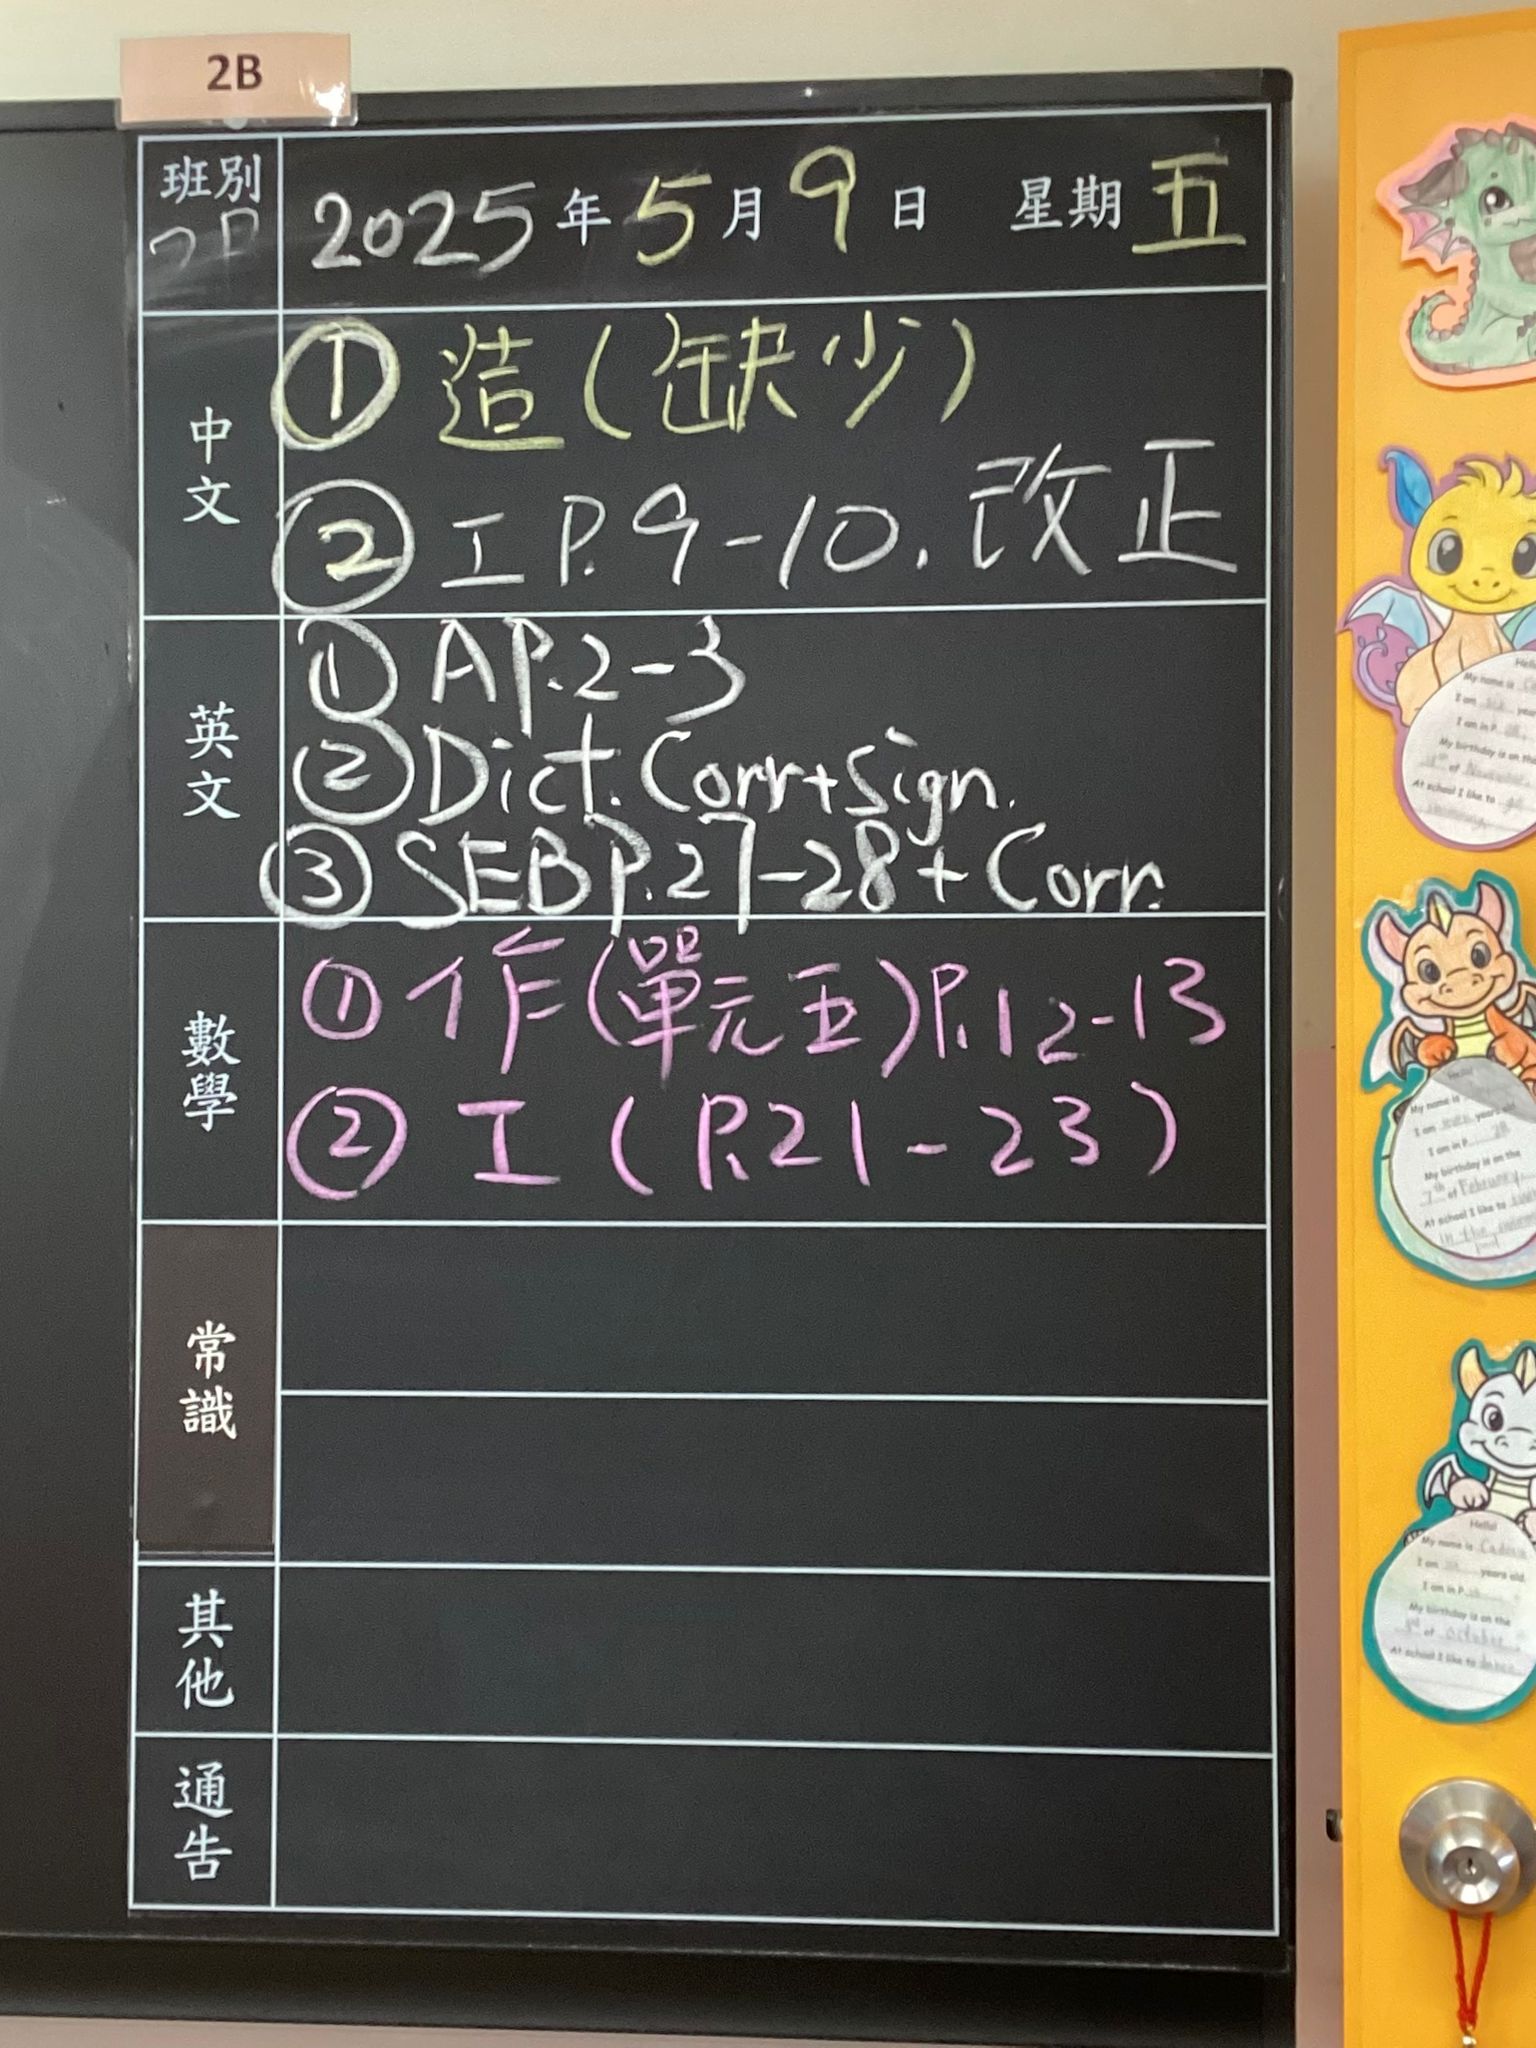 2B
班別
2025年5月9日 星期五
中文
① 造(缺少)
② 工 P.9-10. 改正
英文
① A P.2-3
② Dict. Corr+Sign.
③ SEB P.27-28 + Corr.
數學
① 作(單元五)P.12-13
② 工 (P.21-23)
常識
其他
通告
Hello
My name is
I am years
I am in P.
My birthday is on the
of November
At school I like to
swimming
Hello!
My name is
I am years old.
I am in P. 2B
My birthday is on the
7th of February
At school I like to
in the
pool
Hello!
My name is
I am years old.
I am in P.
My birthday is on the
of October
At school I like to